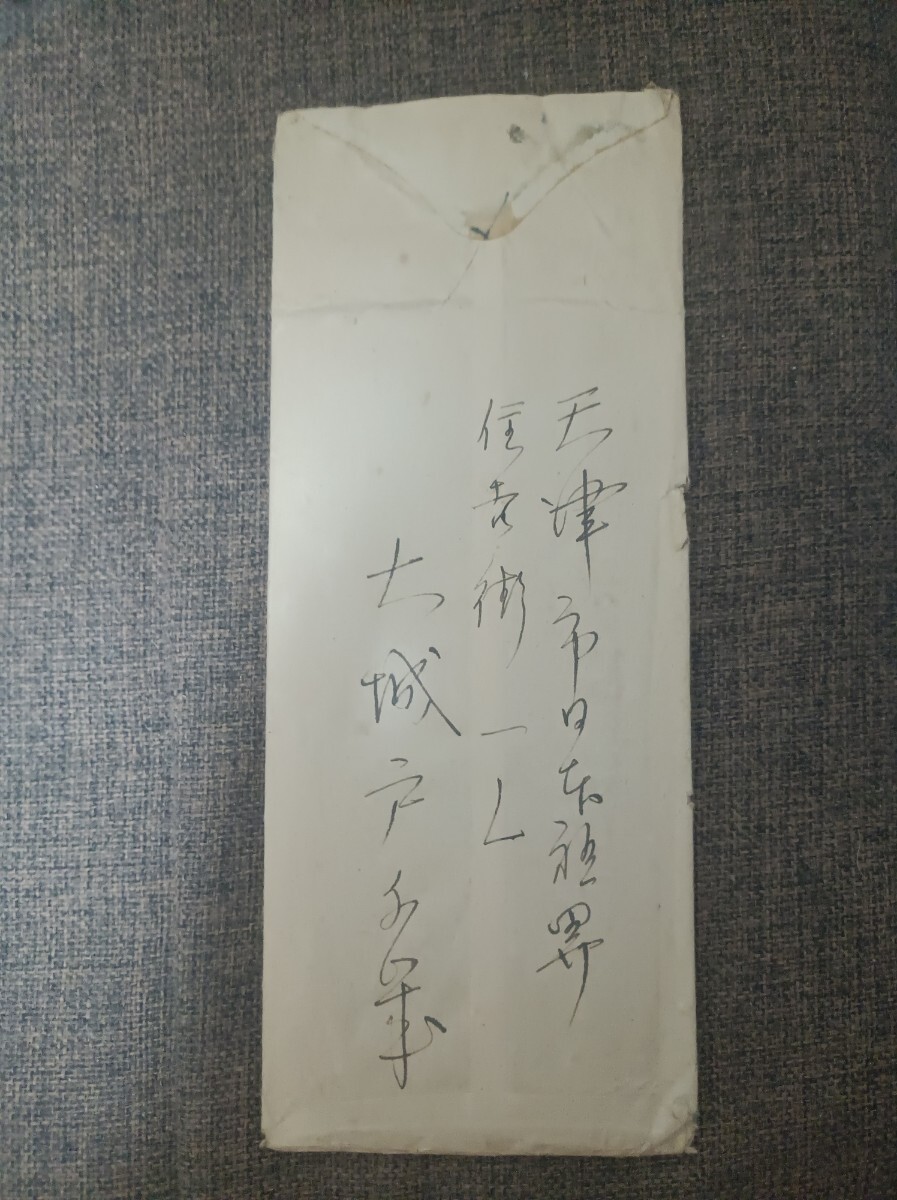 天津市日本租界
住吉街一ノ
大城戸